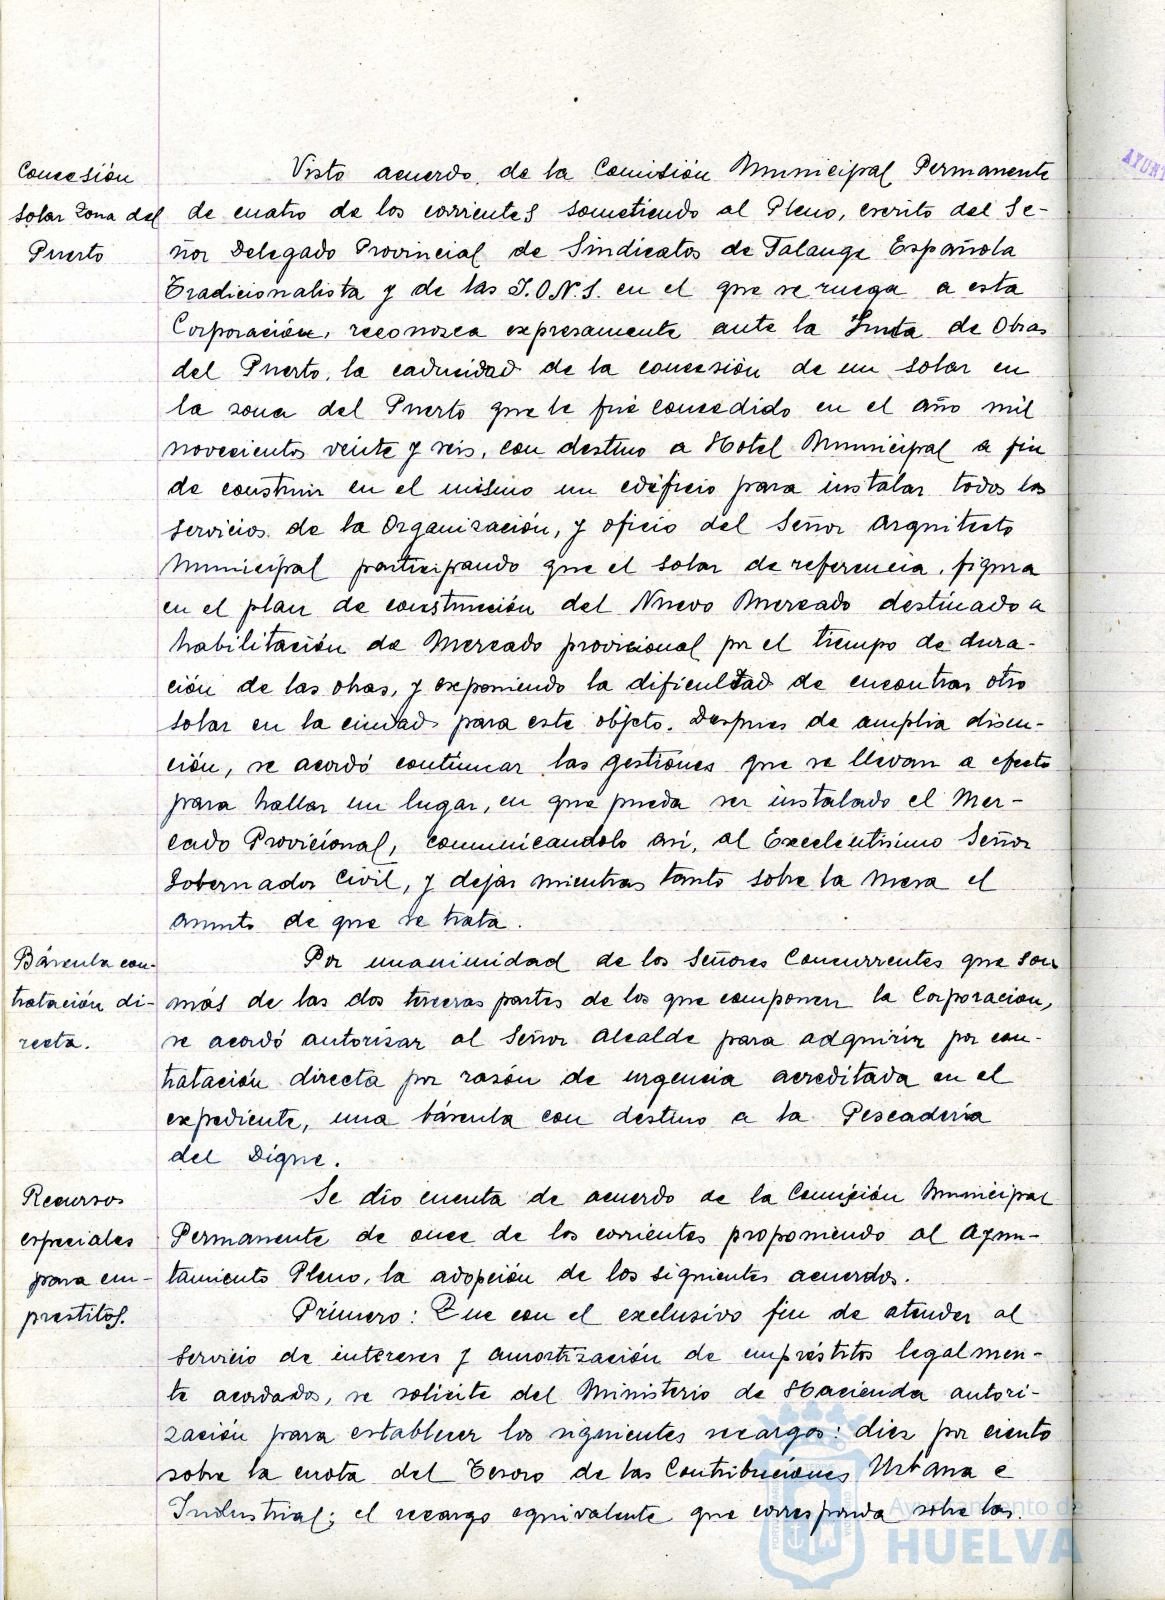 Concesión
solar Zona del
Puerto
Visto acuerdo de la Comisión Municipal Permanente
de cuatro de los corrientes sometiendo al Pleno, escrito del Se-
ñor Delegado Provincial de Sindicatos de Falange Española
Tradicionalista y de las J.O.N.S. en el que se ruega a esta
Corporación, reconozca expresamente ante la Junta de Obras
del Puerto, la caducidad de la concesión de un solar en
la zona del Puerto que le fué concedido en el año mil
novecientos veinte y seis, con destino a Hotel Municipal a fin
de construir en el mismo un edificio para instalar todos los
servicios de la Organización, y oficio del Señor Arquitecto
Municipal participando que el solar de referencia, figura
en el plan de construcción del Nuevo Mercado destinado a
habilitación de Mercado provicional por el tiempo de dura-
ción de las obras, y exponiendo la dificultad de encontrar otro
solar en la ciudad para este objeto. Despues de amplia discu-
ción, se acordó continuar las gestiones que se llevan a efecto
para hallar un lugar, en que pueda ser instalado el Mer-
cado Provicional, comunicandolo asi, al Excelentisimo Señor
Gobernador Civil, y dejar mientras tanto sobre la mesa el
asunto de que se trata.
Báscula con-
tratación di-
recta.
Por unanimidad de los Señores Concurrentes que son
más de las dos terceras partes de los que componen la Corporación,
se acordó autorizar al Señor Alcalde para adquirir por con-
tratación directa por razón de urgencia acreditada en el
expediente, una báscula con destino a la Pescadería
del Dique.
Recursos
especiales
para em-
prestitos.
Se dio cuenta de acuerdo de la Comisión Municipal
Permanente de once de los corrientes proponiendo al Ayun-
tamiento Pleno, la adopción de los siguientes acuerdos.
Primero: Que con el exclusivo fin de atender al
servicio de intereses y amortización de empréstitos legalmen-
te acordados, se solicite del Ministerio de Hacienda autori-
zación para establecer los siguientes recargos: diez por ciento
sobre la cuota del Tesoro de las Contribuciones Urbana e
Industrial; el recargo equivalente que corresponda sobre las
Ayuntamiento de
HUELVA
AYUNT